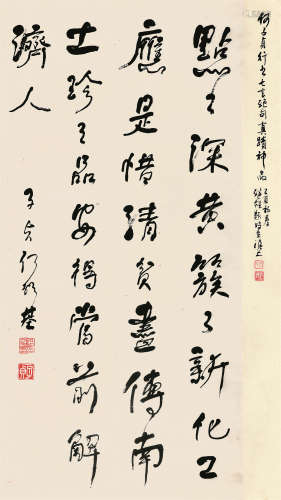 何子貞行書七言絕句真蹟神品
點々深黃簇々新化工
應是惜清貧畫傳南
士珍々品安得當前解
濟人
子貞何紹基